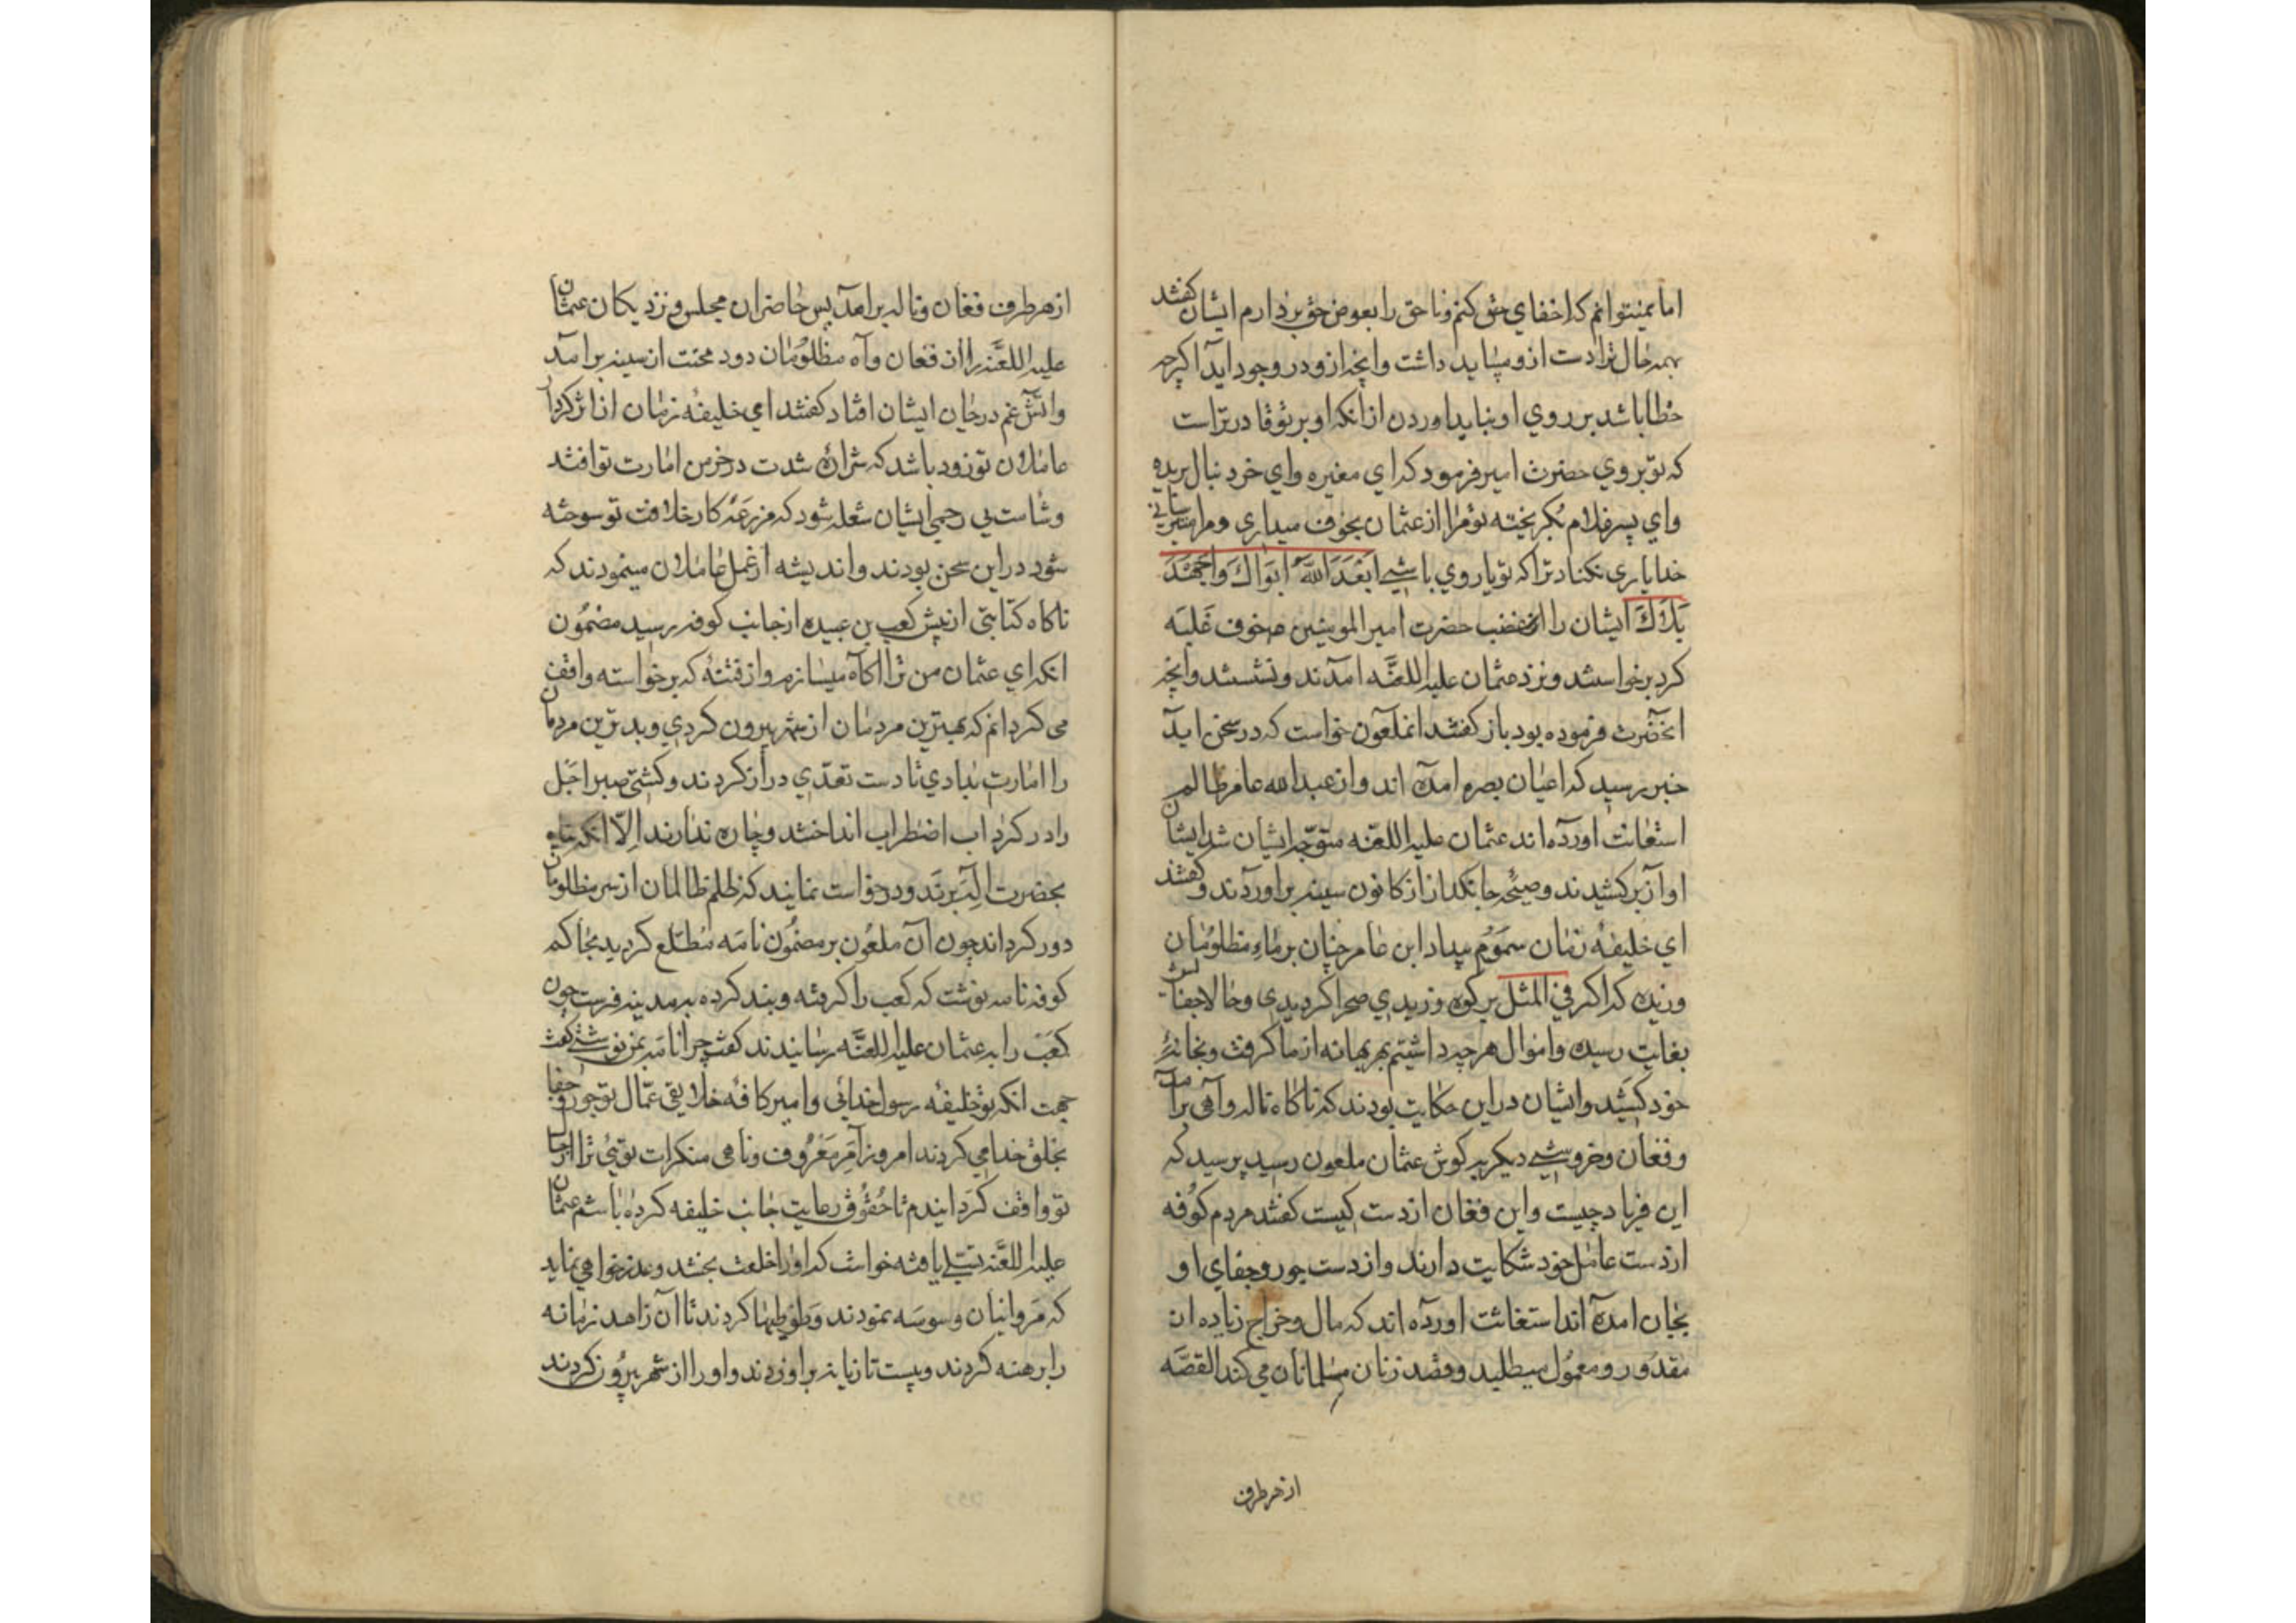 اما نمیتوانم که اخفای حق کنم و ناحق را بعوض حق بردارم ایشان کفتند
بهمه حال ترا دست ازو میباید داشت وانچه ازو در وجود آید اکرچه
خطا باشد بر روی او نباید اوردن از انکه او بر تو قادرتر است
که تو بروی حضرت امیر فرمود که ای مغیره وای خر دنبال بریده
وای پسر غلام بکریخته تو مرا از عثمان بخوف میداری و مرا
خدا یاری نکناد ترا که تو یار وی باشی ابعد الله ابواك واجهد
بلاك ایشان را از غضب حضرت امیر المومنین خوف غلبه
کرد برخواستند و نزد عثمان علیه اللعنه امدند و نشستند وانچه
انحضرت فرموده بود باز کفتند انملعون خواست که در سخن اید
خبر رسید که اعیان بصره امده اند و از عبدالله عامر ظالم
استغاثت اورده اند عثمان علیه اللعنه متوجه ایشان شد ایشان
اواز برکشیدند و صیحه جانکداز از کانون سینه براوردند و کفتند
ای خلیفه زمان سموم بیداد ابن عامر چنان بر ماء مظلومان
وزیده که اکر فی المثل بر کوه وزیدی صحرا کردیدی و حالا جفاش
بغایت رسیده و اموال هرچه داشتیم بهر بهانه از ما کرفت و بخانه
خود کشید و ایشان در این حکایت بودند که ناکاه ناله و آهی برآمد
و فغان و خروشی دیکر به کوش عثمان ملعون رسید پرسید که
این فریاد چیست و این فغان از دست کیست کفتند مردم کوفه
از دست عامل خود شکایت دارند و از دست جور و جفای او
بجان امده اند استغاثت اورده اند که مال و خراج زیاده از
مقدور و معمول میطلبد و قصد زنان مسلمانان می کند القصه
از هر طرف
از هر طرف فغان و ناله برامد پس حاضران مجلس و نزدیکان عثمان
علیه اللعنه را از فغان و آه مظلومان دود محنت از سینه برآمد
و اتش غم در جان ایشان افتاد کفتند ای خلیفه زمان از اثر کردار
عاملان تو زود باشد که شراره شدت در خرمن امارت تو افتد
و شامت بی رحمی ایشان شعله شود که مزرعه کار خلافت تو سوخته
شود در این سخن بودند و اندیشه از عمل عاملان مینمودند که
ناکاه کتابتی از پیش کعب بن عبیده از جانب کوفه رسید مضمون
انکه ای عثمان من ترا اکاه میسازم و از فتنه که برخواسته واقف
می کردانم که بهترین مردمان از شهر بیرون کردی و بدترین مردمان
را امارت بدادی تا دست تعدی دراز کردند و کشتی صبر اجل
را در کرداب اضطراب انداختند و چاره ندارند الا انکه پناه
بحضرت اله برند و درخواست نمایند که ظلم ظالمان از سر مظلومان
دور کرداند چون آن ملعون بر مضمون نامه مطلع کردید بحاکم
کوفه نامه نوشت که کعب را کرفته و بند کرده به مدینه فرست چون
کعب را به عثمان علیه اللعنه رسانیدند کفت چرا نامه بمن نوشتی کفت
جهت انکه تو خلیفه رسول خدائی و امیر کافه خلایقی عمال تو جور و جفا
بخلق خدا می کردند امروز آمر معروف و ناهی منکرات توئی ترا از حال
تو واقف کردانیدم تا حقوق رعایت جانب خلیفه کرده باشم عثمان
علیه اللعنه تسلی یافته خواست که او را خلعت بخشد و عذرخواهی نماید
که مروانیان وسوسه نمودند و کردند تا آن زاهد زمانه
را برهنه کردند و بیست تازیانه براوزدند و او را از شهر بیرون کردند